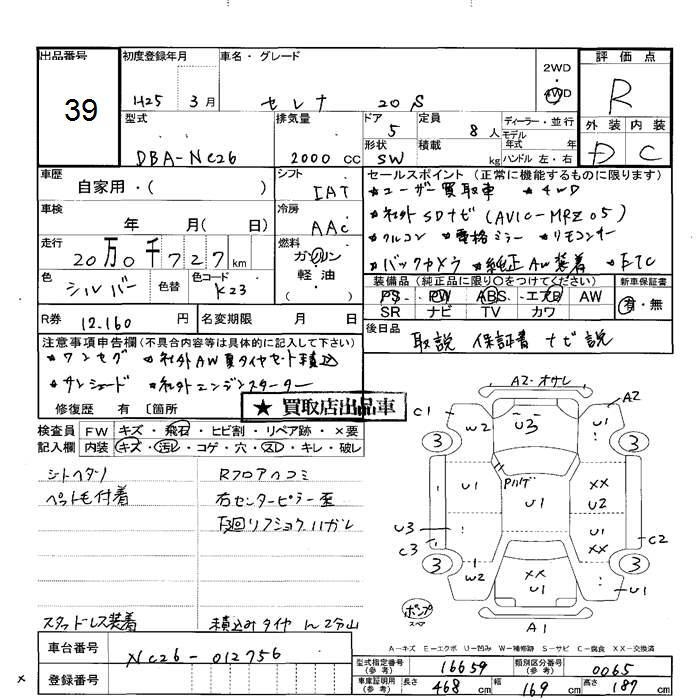 出品番号
39
初度登録年月
H25 3月
車名・グレード
セレナ 20S
2WD
・
4WD
評価点
R
外装 内装
D C
型式
DBA-NC26
排気量
2000 CC
ドア
5
定員
8人
形状
SW
積載
kg
ディーラー・並行
モデル
年式 年
ハンドル 左・右
車歴
自家用・( )
シフト
IAT
車検
年 月( 日)
冷房
AAC
走行
20万0千727km
燃料
ガソリン
軽油
( )
色
シルバー
色替
色コード
K23
R券
12.160円
名変期限 月 日
セールスポイント(正常に機能するものに限ります)
★ユーザー買取車 ★4WD
★社外SDナビ(AVIC-MRZ05)
★アルコン ★電格ミラー ★リモコンキー
★バックカメラ ★純正AW装着 ★ETC
装備品(純正品に限り○をつけてください)
PS PW ABS エアB AW
SR ナビ TV カワ
新車保証書
有・無
後日品
取説 保証書 ナビ説
注意事項申告欄(不具合内容等は具体的に記入して下さい)
★ワンセグ ★社外AW夏タイヤセット積込
★サンシェード ★社外エンジンスターター
修復歴 有 〔箇所
★ 買取店出品車
検査員
記入欄
FW キズ・飛石・ヒビ割・リペア跡・×要
内装 キズ・汚レ・コゲ・穴・スレ・キレ・破レ
シートヘタリ
ペット毛付着
スタッドレス装着
Rフロアヘコミ
右センターピラー歪
下廻リフショクハガレ
積込みタイヤ
車台番号
NC26-012756
登録番号
A2-オサレ
C1
W2
U3
A2
U
3
3
U1
Pハゲ
U1
XX
U2
U3
C3
XX
C2
3
3
W2
XX
U1
U1
ポンプ
スペア
A1
A-キズ E-エクボ U-凹み W-補修跡 S-サビ C-腐食 XX-交換済
型式指定番号
(参考)
16659
類別区分番号
(参考)
0065
車庫証明用
(参考)
長さ 468cm
幅 169cm
高さ 187cm
×